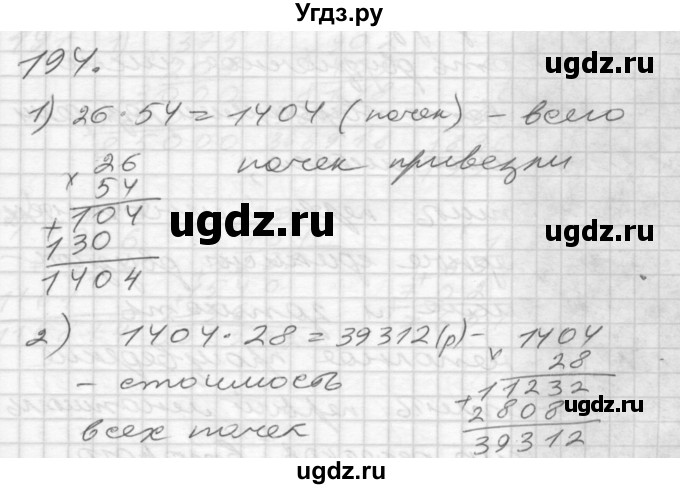 Угдз.ру
194.
ugdz.ru
ugdz.ru
1) 26·54=1404 (пачек) - всего
пачек привезли
26
× 54
+ 104
130
1404
ugdz.ru
ugdz.ru
2) 1404·28=39312(р)-
- стоимость
всех пачек
1404
× 28
+ 11232
2808
39312
ugdz.ru
ugdz.ru
ugdz.ru